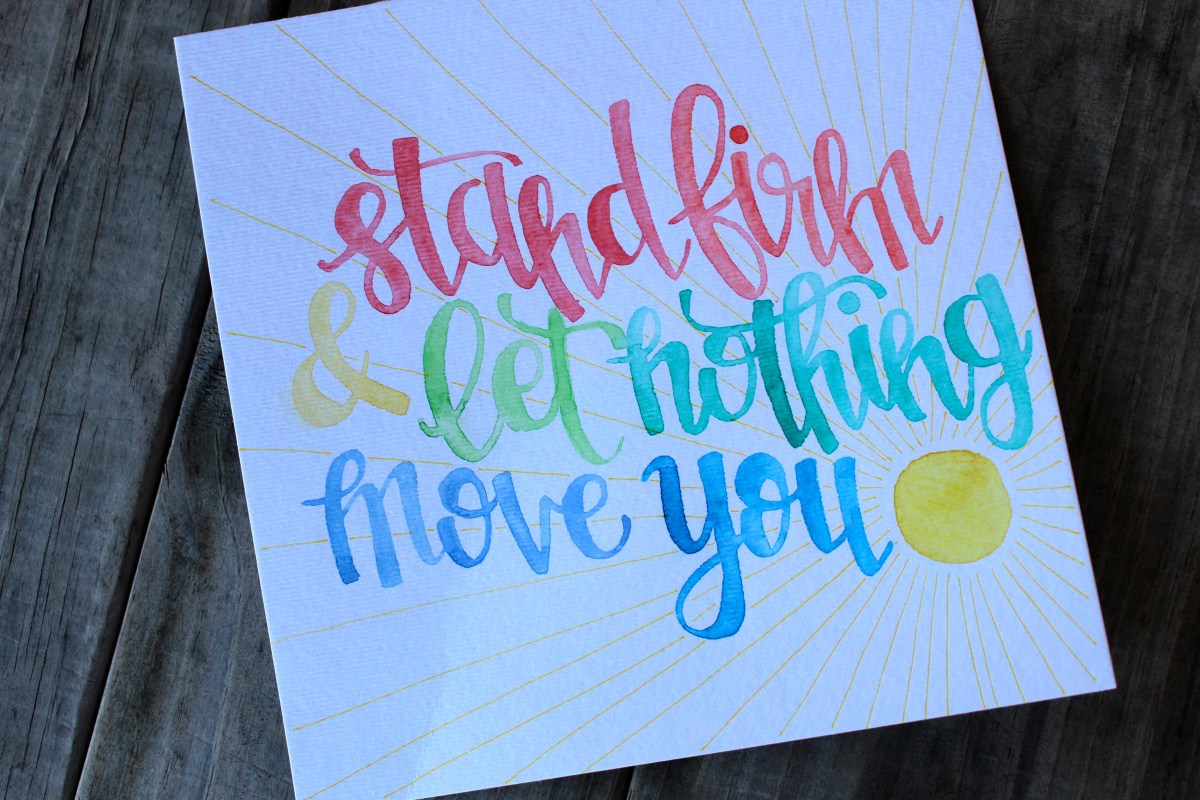 stand firm
& let nothing
move you